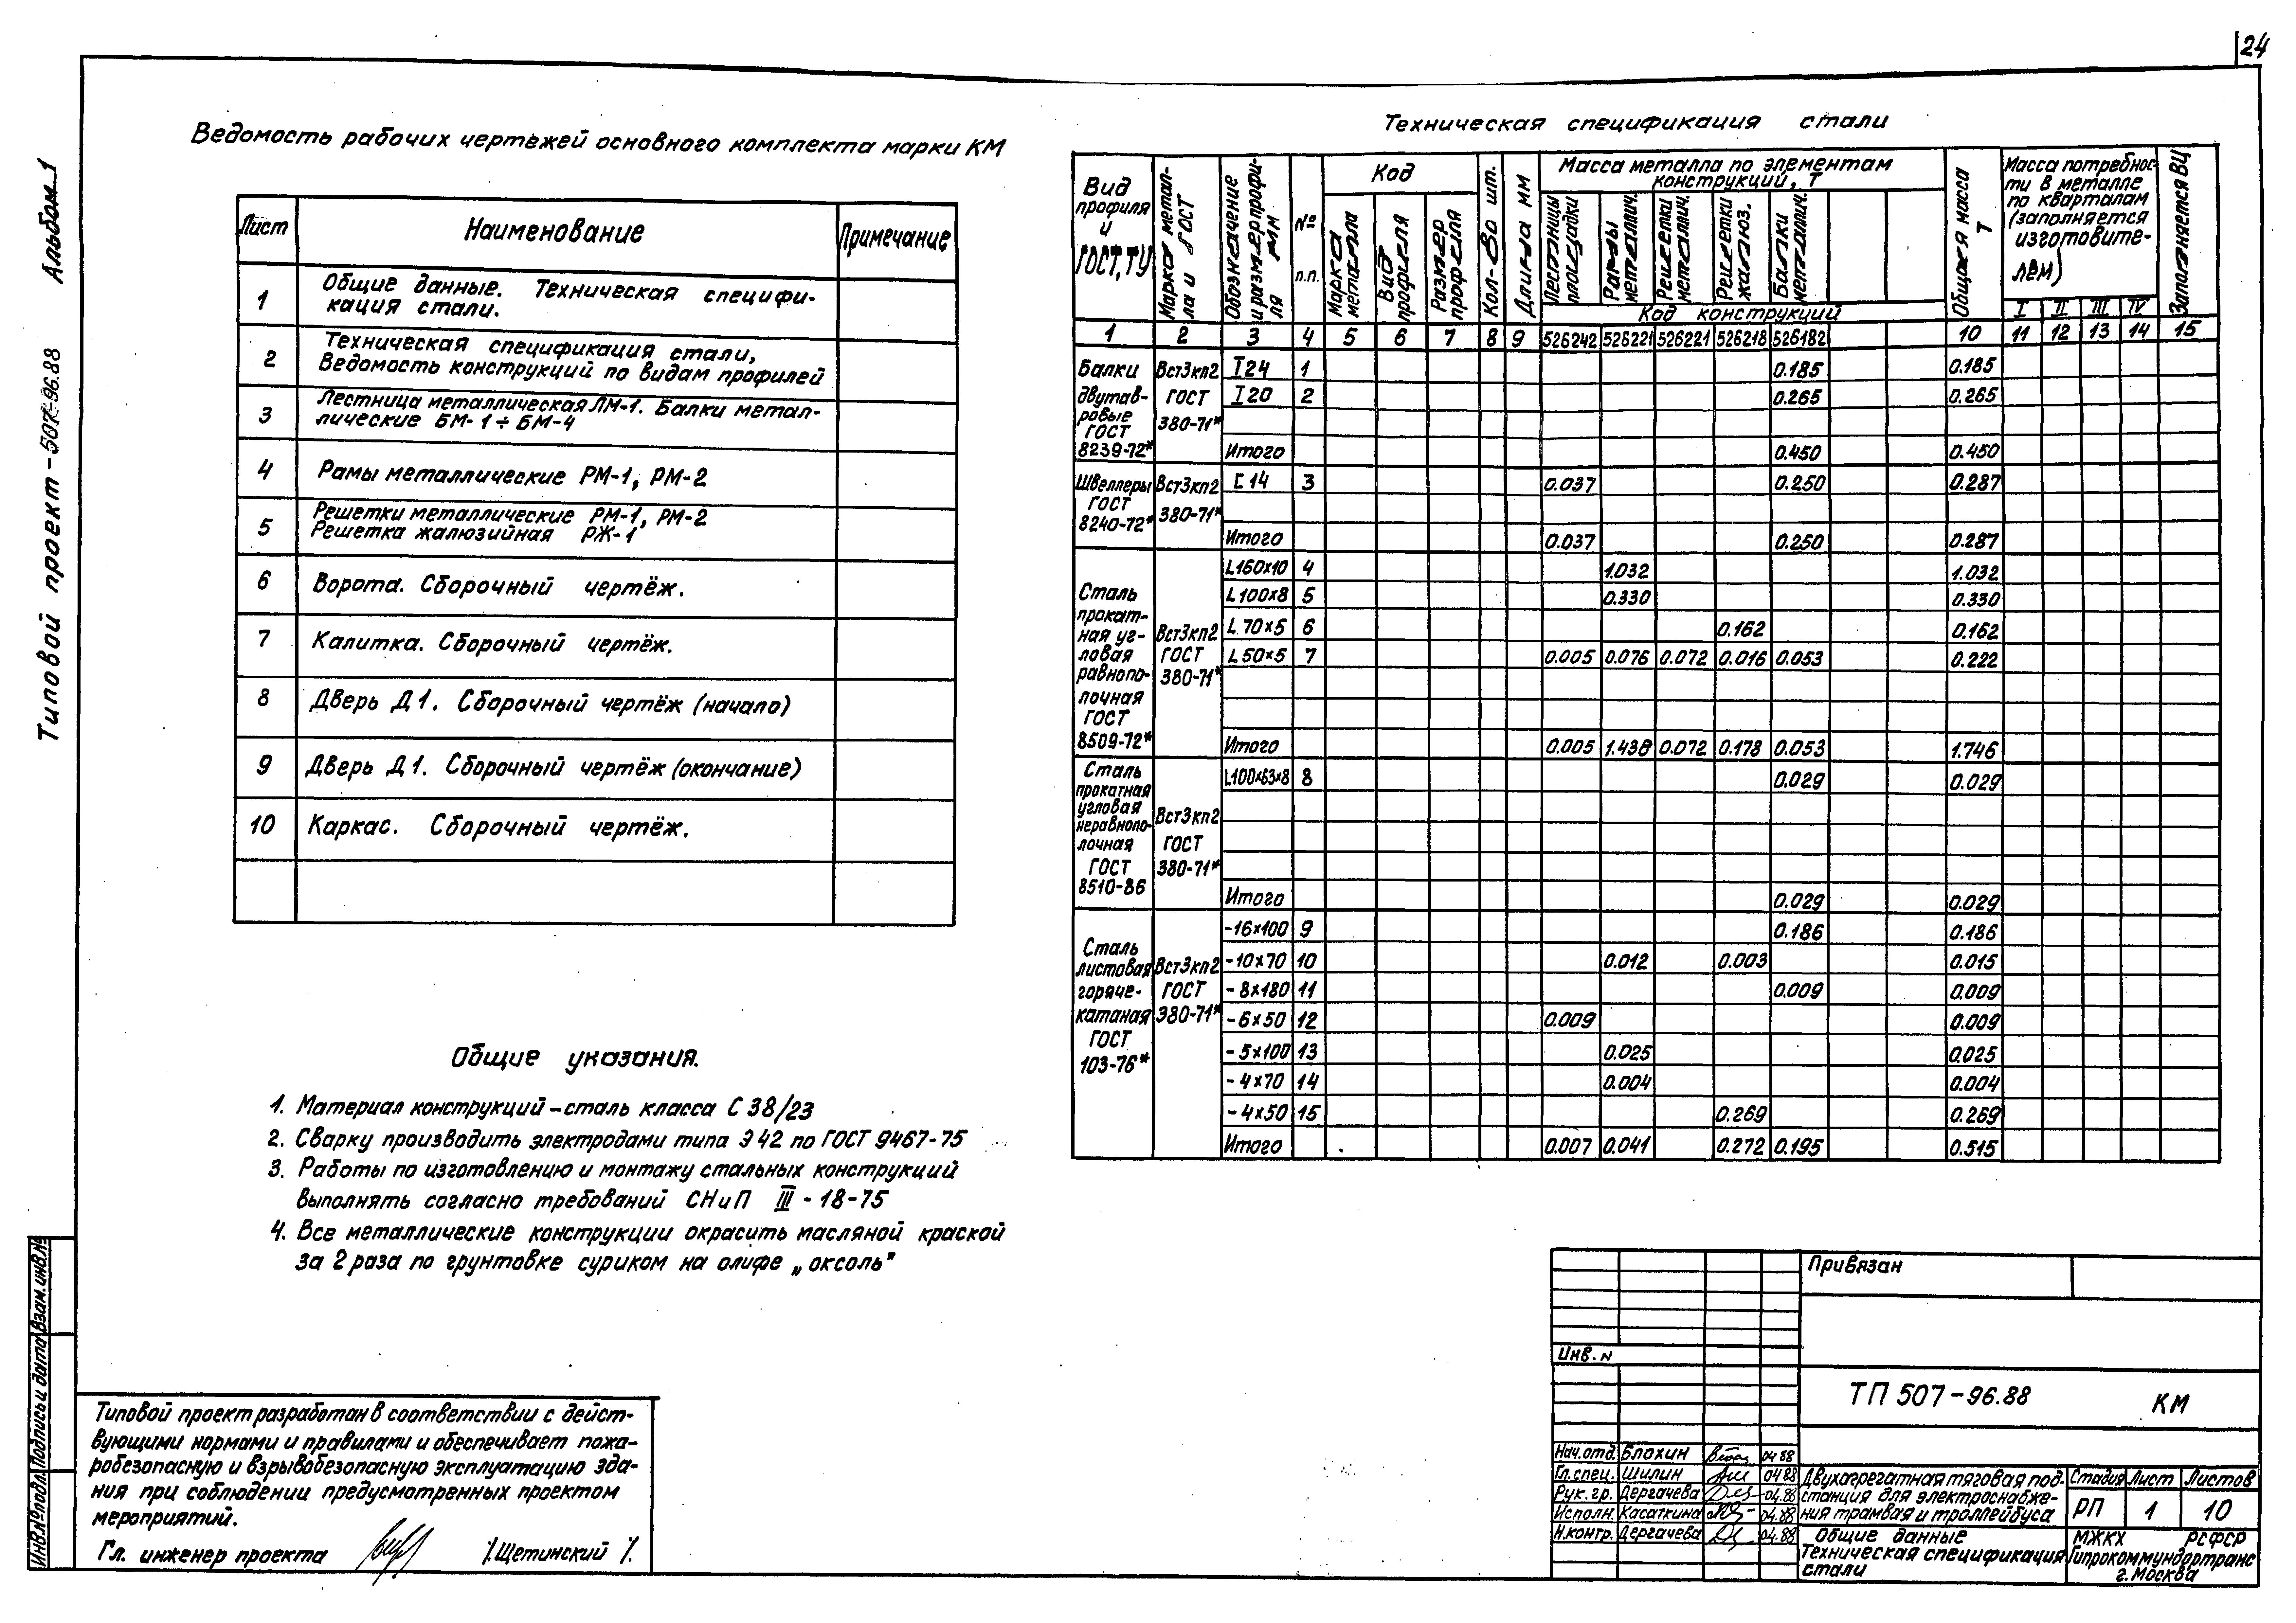 24
Альбом 1
Типовой проект-507-96.88
Ведомость рабочих чертежей основного комплекта марки КМ
Лист Наименование Примечание
1 Общие данные. Техническая специфи-
кация стали.
2 Техническая спецификация стали,
Ведомость конструкций по видам профилей
3 Лестница металлическая ЛМ-1. Балки метал-
лические БМ-1÷БМ-4
4 Рамы металлические РМ-1, РМ-2
5 Решетки металлические РМ-1, РМ-2
Решетка жалюзийная РЖ-1
6 Ворота. Сборочный чертёж.
7 Калитка. Сборочный чертёж.
8 Дверь Д1. Сборочный чертёж (начало)
9 Дверь Д1. Сборочный чертёж (окончание)
10 Каркас. Сборочный чертёж.
Общие указания.
1. Материал конструкций-сталь класса С 38/23
2. Сварку производить электродами типа Э42 по ГОСТ 9467-75
3. Работы по изготовлению и монтажу стальных конструкций
выполнять согласно требований СНиП III-18-75
4. Все металлические конструкции окрасить масляной краской
за 2 раза по грунтовке суриком на олифе „оксоль"
Техническая спецификация стали
Вид
профиля
и
ГОСТ, ТУ
Марка метал-
ла и ГОСТ
Обозначение
и размер профи-
ля мм
№
п.п.
Код
Марка
металла
Вид
профиля
Размер
профиля
Кол-во шт.
Длина мм
Масса металла по элементам
конструкций, Т
Лестницы
площадки
Рамы
металлич.
Решетки
металлич.
Решетки
жалюз.
Балки
металлич.
Код конструкций
Общая масса
Т
Масса потребнос-
ти в металле
по кварталам
(заполняется
изготовите-
лем)
I II III IV
Заполняется ВЦ
1 2 3 4 5 6 7 8 9 526242 526221 526221 526218 526182 10 11 12 13 14 15
Балки
двутав-
ровые
ГОСТ
8239-72*
ВСт3кп2
ГОСТ
380-71*
I24 1 0.185 0.185
I20 2 0.265 0.265
Итого 0.450 0.450
Швеллеры
ГОСТ
8240-72*
ВСт3кп2
380-71*
[14 3 0.037 0.250 0.287
Итого 0.037 0.250 0.287
Сталь
прокат-
ная уг-
ловая
равнопо-
лочная
ГОСТ
8509-72*
ВСт3кп2
ГОСТ
380-71*
L160х10 4 1.032 1.032
L100х8 5 0.330 0.330
L70х5 6 0.162 0.162
L50х5 7 0.005 0.076 0.072 0.016 0.053 0.222
Итого 0.005 1.438 0.072 0.178 0.053 1.746
Сталь
прокатная
угловая
неравнопо-
лочная
ГОСТ
8510-86
ВСт3кп2
ГОСТ
380-71*
L100х63х8 8 0.029 0.029
Итого 0.029 0.029
Сталь
листовая
горяче-
катаная
ГОСТ
103-76*
ВСт3кп2
ГОСТ
380-71*
-16х100 9 0.186 0.186
-10х70 10 0.012 0.003 0.015
-8х180 11 0.009 0.009
-6х50 12 0.009 0.009
-5х100 13 0.025 0.025
-4х70 14 0.004 0.004
-4х50 15 0.269 0.269
Итого 0.007 0.041 0.272 0.195 0.515
Инв.№подл. Подпись и дата Взам.инв.№
Типовой проект разработан в соответствии с дейст-
вующими нормами и правилами и обеспечивает пожа-
робезопасную и взрывобезопасную эксплуатацию зда-
ния при соблюдении предусмотренных проектом
мероприятий.
Гл. инженер проекта /.Щетинский /.
Привязан
Инв. N
ТП 507-96.88 КМ
Нач.отд. Блохин 04.88
Гл.спец. Шилин 04.88
Рук.гр. Дергачева 04.88
Исполн. Касаткина 04.88
Н.контр. Дергачева 04.88
Двухагрегатная тяговая под-
станция для электроснабже-
ния трамвая и троллейбуса
Стадия Лист Листов
РП 1 10
Общие данные
Техническая спецификация
стали
МЖКХ РСФСР
Гипрокоммундортранс
г. Москва